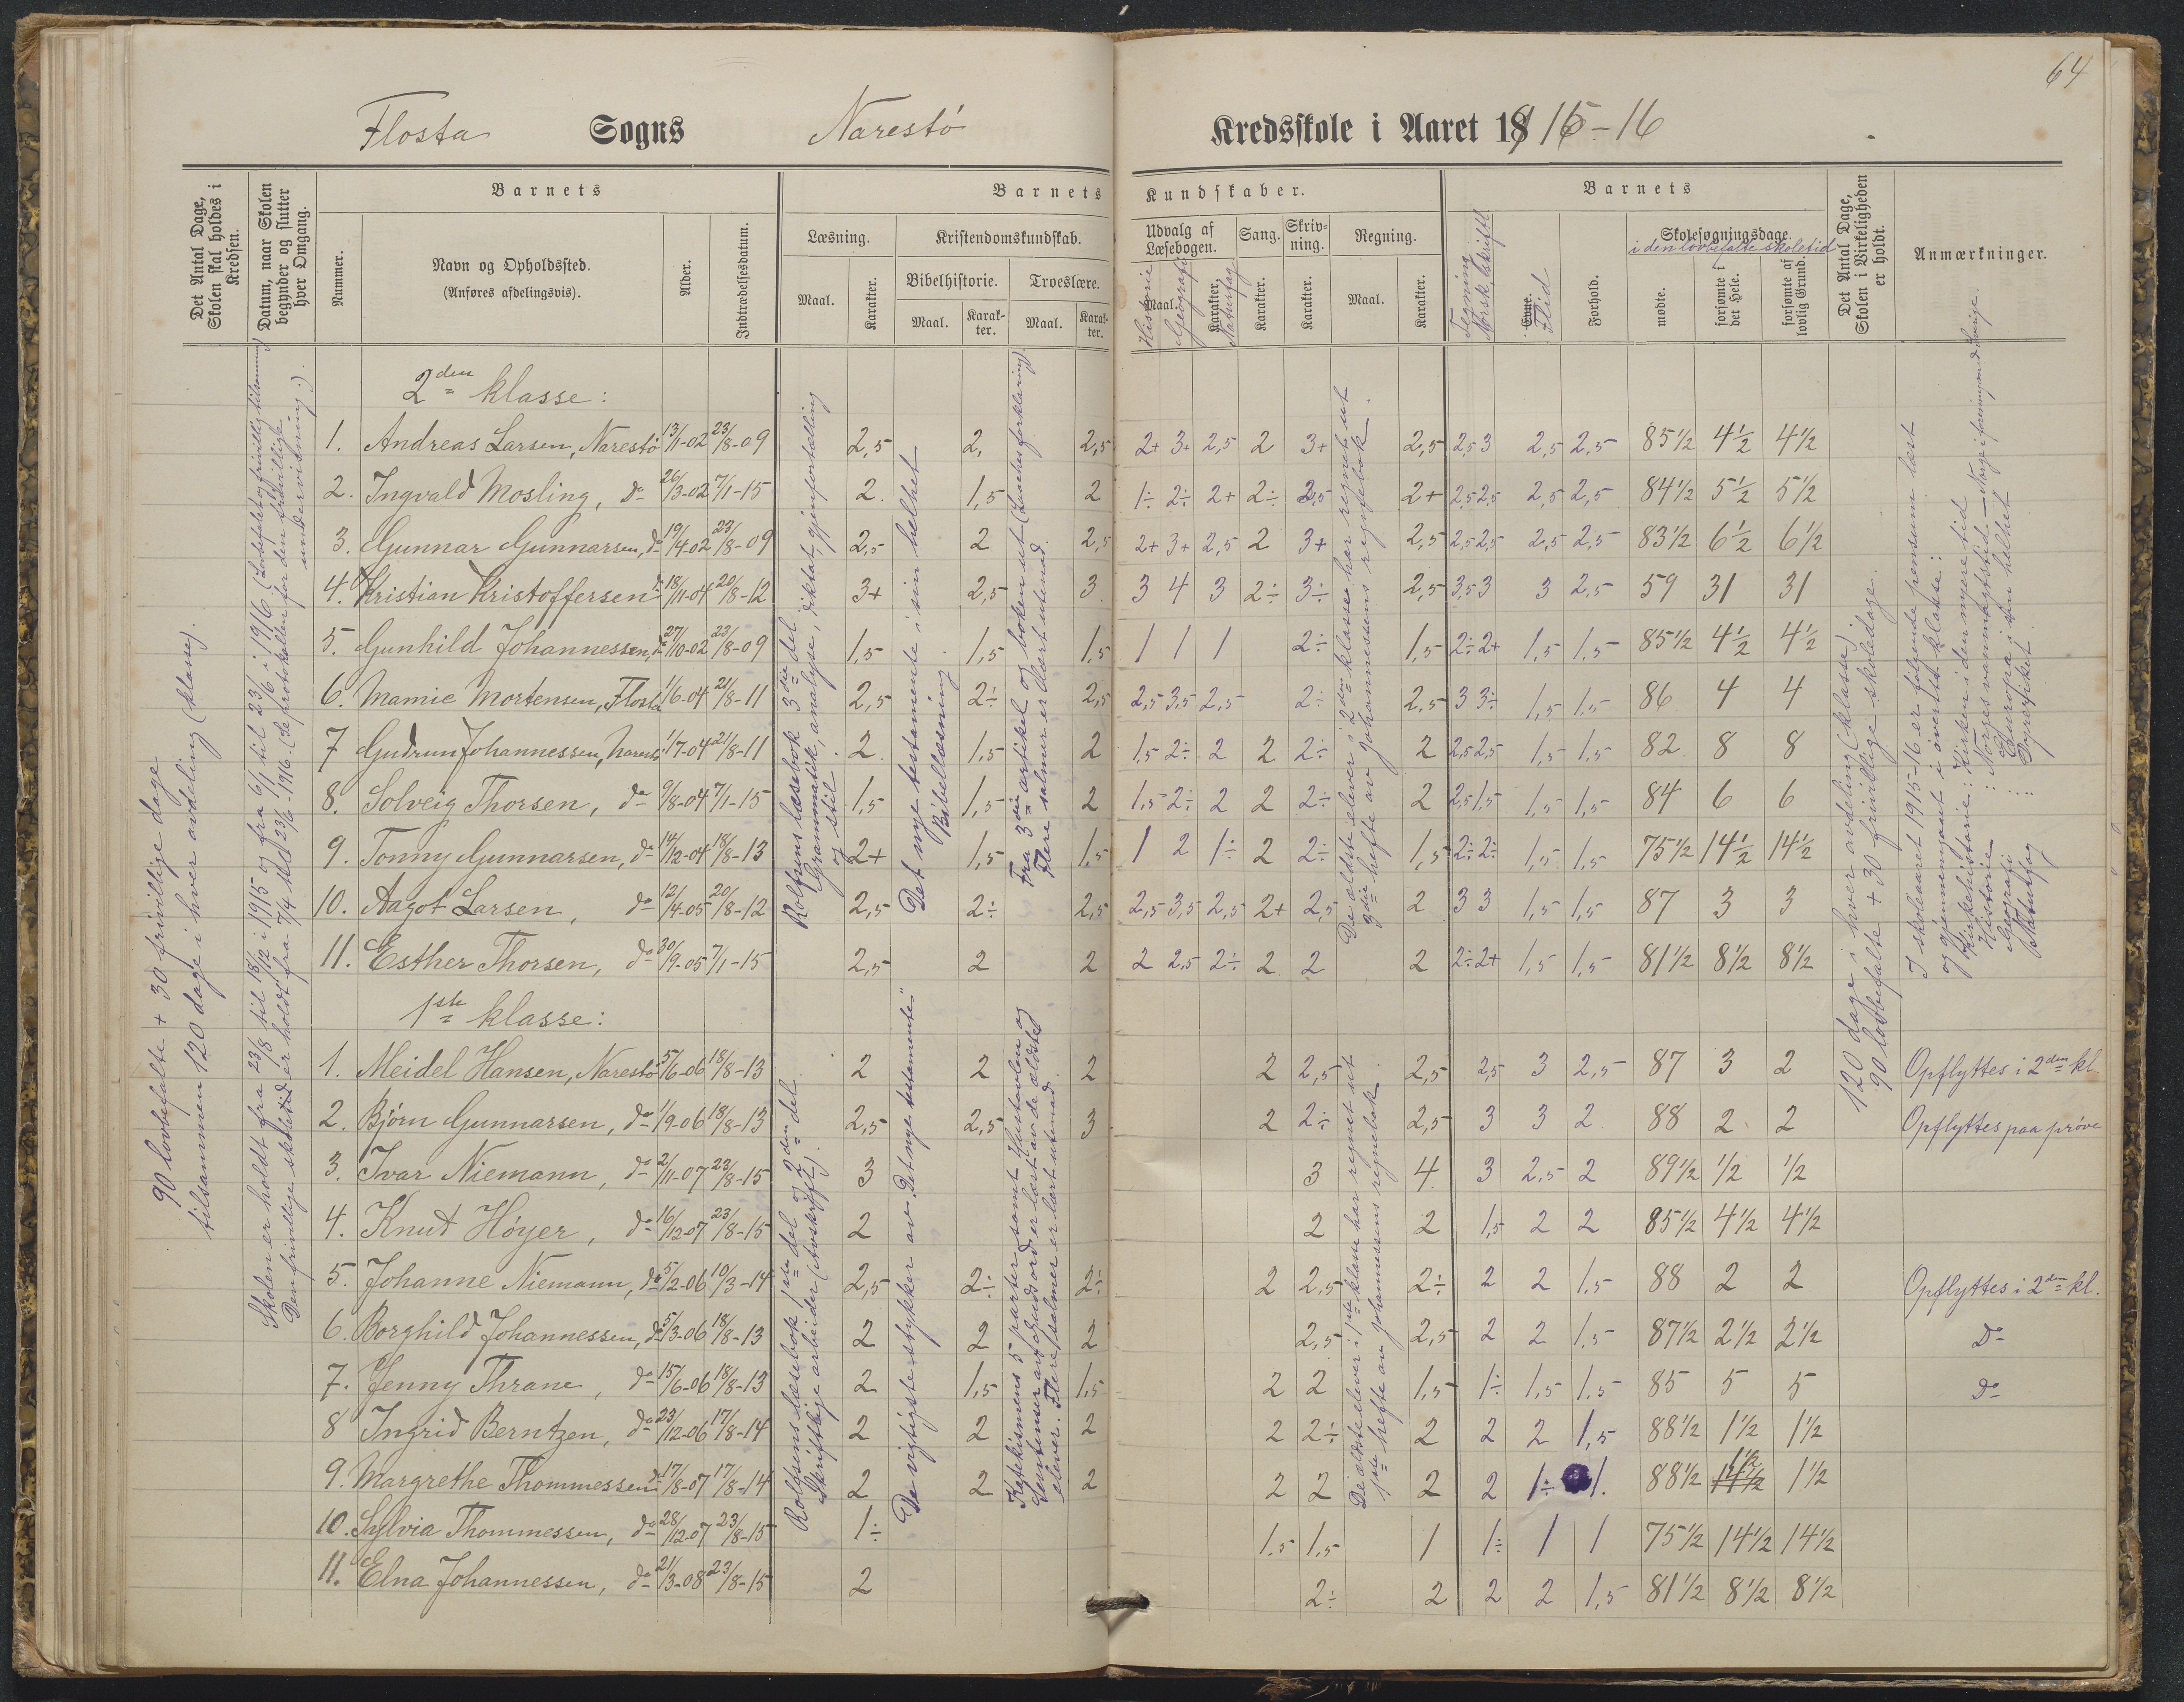 64
Flosta Sogns Narestö Kredsskole i Aaret 1915-16
Det Antal Dage, Skolen skal holdes i Kredsen.
Datum, naar Skolen begynder og slutter hver Omgang.
Nummer.
Barnets
Navn og Opholdssted.
(Anføres afdelingsvis).
Alder.
Indtrædelsesdatum.
Barnets Kundskaber.
Læsning.
Maal.
Karakter.
Kristendomskundskab.
Bibelhistorie.
Maal.
Karak-ter.
Troeslære.
Maal.
Karak-ter.
Udvalg af Læsebogen.
Maal.
Karakter.
Historie
Geografi
Naturfag
Sang.
Karakter.
Skriv-ning.
Karakter.
Regning.
Maal.
Karakter.
Barnets
Tegning
Norsk skriftl.
Evne.
Flid
Forhold.
Skolesøgningsdage.
i den lovbefalte skoletid
mødte.
forsømte i det Hele.
forsømte af lovlig Grund.
Det Antal Dage, Skolen i Virkeligheden er holdt.
Anmærkninger.
90 lovbefalte + 30 frivillige dage
tilsammen 120 dage i hver avdeling (klasse).
Skolen er holdt fra 23/8 til 18/12 i 1915 og fra 6/1 til 23/6 i 1916 (Lovbefalet og frivillig tilsammen)
Den frivillige skoletid er holdt fra 7/4 til 23/6 - 1916. (Se protokollen for den frivillige
undervisning.)
2den klasse:
1. Andreas Larsen, Narestö 13/11-02 23/8-09 2,5 2, 2,5 2+ 3+ 2,5 2 3+ 2,5 2,5 3 2,5 2,5 85½ 4½ 4½
2. Ingvald Mosling, do 26/3-02 7/1-15 2. 1,5 2 1÷ 2÷ 2+ 2÷ 2,5 2+ 2,5 2,5 2,5 2,5 84½ 5½ 5½
3. Gunnar Gunnarsen, do 19/4-02 23/8-09 2,5 2 2,5 2+ 3+ 2,5 2 3+ 2,5 2,5 2,5 2,5 2,5 83½ 6½ 6½
4. Kristian Kristoffersen do 18/11-04 20/8-12 3+ 2,5 3 3 4 3 2÷ 3÷ 2,5 3,5 3 3 2,5 59 31 31
5. Gunhild Johannessen, do 27/10-02 23/8-09 1,5 1,5 1,5 1 1 1 2÷ 1,5 2÷ 2+ 1,5 1,5 85½ 4½ 4½
6. Mamie Mortensen, Flosta 1/6-04 21/8-11 2,5 2÷ 2,5 2,5 3,5 2,5 2÷ 2,5 3 3÷ 1,5 1,5 86 4 4
7 Gudrun Johannessen, Narestö 1/7-04 21/8-11 2 1,5 2 1,5 2÷ 2 2 2÷ 2 2,5 2,5 1,5 1,5 82 8 8
8. Solveig Thorsen, do 9/8-04 7/1-15 1,5 1,5 2 1,5 2÷ 2 2 2÷ 2 2,5 1,5 1,5 1,5 84 6 6
9. Tonny Gunnarsen, do 14/12-04 18/8-13 2+ 1,5 1,5 1 2 1÷ 2 2÷ 1,5 2÷ 2÷ 1,5 1,5 75½ 14½ 14½
10. Aagot Larsen, do 12/4-05 20/8-12 2,5 2÷ 2,5 2,5 3,5 2,5 2+ 2,5 2 3 3 1,5 1,5 87 3 3
11. Esther Thorsen, do 30/9-05 7/1-15 2,5 2 2 2 2,5 2÷ 2 2 2 2÷ 2+ 1,5 1,5 81½ 8½ 8½
Rolfsens læsebok 3die del
Grammatik, analyse, diktat, gjenfortælling
og stil.
Det nye testamente i sin helhet
Bibellæsning.
Fra 3die artikel og boken ut (Luthers forklaring).
Flere salmer er lært utenad.
De ældste elever i 2den klasse har regnet ut
3die hefte av Johannesens regnebok.
120 dage i hver avdeling (klasse).
90 lovbefalte + 30 frivillige skoledage.
I skoleaaret 1915-16 er følgende pensum læst
og gjennemgaat i øverste klasse:
Kirkehistorie: Kirken i den nyere tid
Historie: Norges vanmagtstid - Norge i forening med Sverige.
Geografi: Europa i sin helhet
Naturfag: Dyreriket.
1ste klasse:
1. Meidel Hansen, Narestö 5/6-06 18/8-13 2 2 2 2 2,5 2,5 2,5 3 2,5 87 3 2 Opflyttes i 2den kl.
2. Björn Gunnarsen, do 1/9-06 18/8-13 2,5 2,5 3 2 2÷ 2,5 3 3 2 88 2 2 Opflyttes paa prøve
3. Ivar Niemann, do 2/11-07 23/8-15 3 3 4 3 2,5 2 89½ ½ ½
4. Knut Höyer, do 16/12-07 23/8-15 2 2 2 1,5 2 2 85½ 4½ 4½
5. Johanne Niemann, do 5/2-06 10/3-14 2,5 2÷ 2÷ 2 2,5 2÷ 2 2 1,5 88 2 2 Opflyttes i 2den kl.
6. Borghild Johannessen, do 5/3-06 18/8-13 2 2 2 2,5 2,5 2 2 1,5 87½ 2½ 2½ Do
7. Jenny Thrane, do 15/6-06 18/8-13 2 1,5 1,5 2 2 1,5 1÷ 1,5 1,5 85 5 5 Do
8 Ingrid Berntzen, do 23/12-06 17/8-14 2 2 2 2 2÷ 2 2 2 1,5 88½ 1½ 1½
9. Margrethe Thommessen do 17/8-07 17/8-14 2 2 2 2 2 2 2 1÷ 1. 88½ 1½ 1½
10. Sylvia Thommessen, do 28/12-07 23/8-15 1÷ 1,5 1,5 1 1÷ 1 1 75½ 14½ 14½
11. Elna Johannessen, do 21/3-08 23/8-15 2 2÷ 2 2 2 1,5 81½ 8½ 8½
Rolfsens læsebok 1ste del og 2den del.
Skriftlige arbeider (Avskrift).
De vigtigste stykker av „Det nye testamente"
Katekismens 5 parter samt Hustavlen og
er læst av de ældste
elever. Flere salmer er lært utenad.
De ældste elever i 1ste klasse har regnet ut
1ste hefte av Johannesens regnebok.